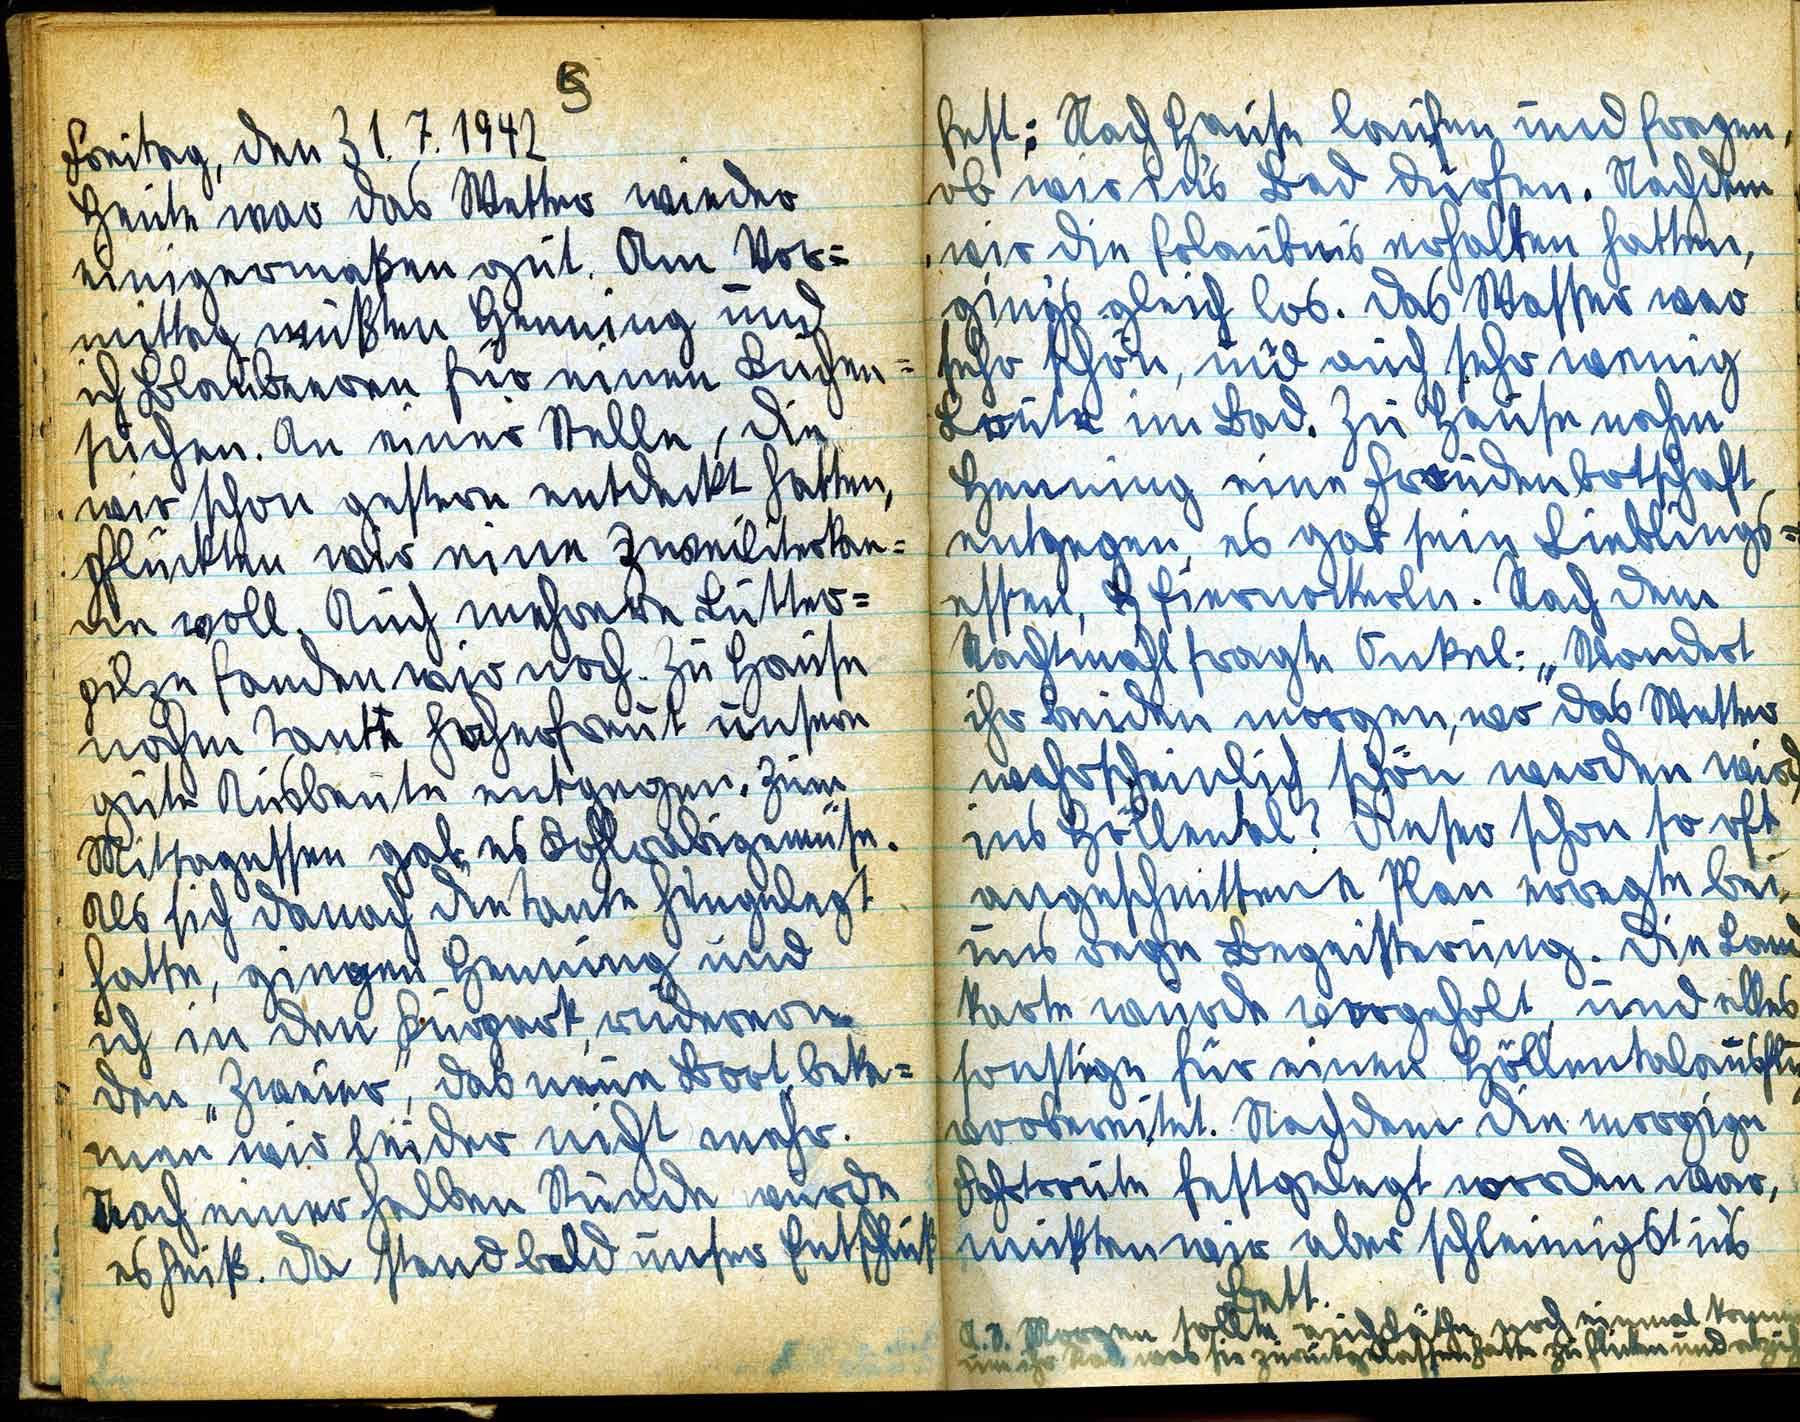 5
Freitag, den 31.7.1942
Heute war das Wetter wieder
einigermaßen gut. Am Vor=
mittag mußten Henning und
ich Blaubeeren für einen Kuchen=
suchen. An einer Stelle, die
wir schon gestern entdeckt hatten,
pflückten wir eine Zweiliterkan=
ne voll. Auch mehrere Butter=
pilze fanden wir noch. Zu Hause
nahm Tante hocherfreut unsere
gute Ausbeute entgegen. Zum
Mittagessen gab es Kohlrabigemüse.
Als sich danach die Tante hingelegt
hatte, gingen Henning und
ich in den Kurpark rudern
den „Zweier“, das neue Boot beka=
men wir leider nicht mehr.
Nach einer halben Stunde wurde
es heiß. Da stand bald unser Entschluß
fest: Nach Hause laufen und fragen,
ob wir ins Bad dürfen. Nachdem
wir die Erlaubnis erhalten hatten,
ging's gleich los. Das Wasser war
sehr schön, und auch sehr wenig
Leute im Bad. Zu Hause nahm
Henning eine Freudenbotschaft
entgegen, es gab sein Lieblings=
essen, Eiernockerln. Nach dem
Nachtmahl fragte Onkel: „Wandert
ihr beiden morgen, wo das Wetter
wahrscheinlich schön werden wird
ins Höllental? Dieser schon so oft
angeschnittene Plan erregte bei
uns rege Begeisterung. Die Land
karte wurde vorgeholt und alles
sonstige für einen Höllentalausflug
vorbereitet. Nachdem die morgige
Fahrtroute festgelegt worden war,
mußten wir aber schleunigst ins
Bett.
Morgen sollte auch noch einmal
um ihr Rad, was sie zurückgelassen hatte zu flicken und